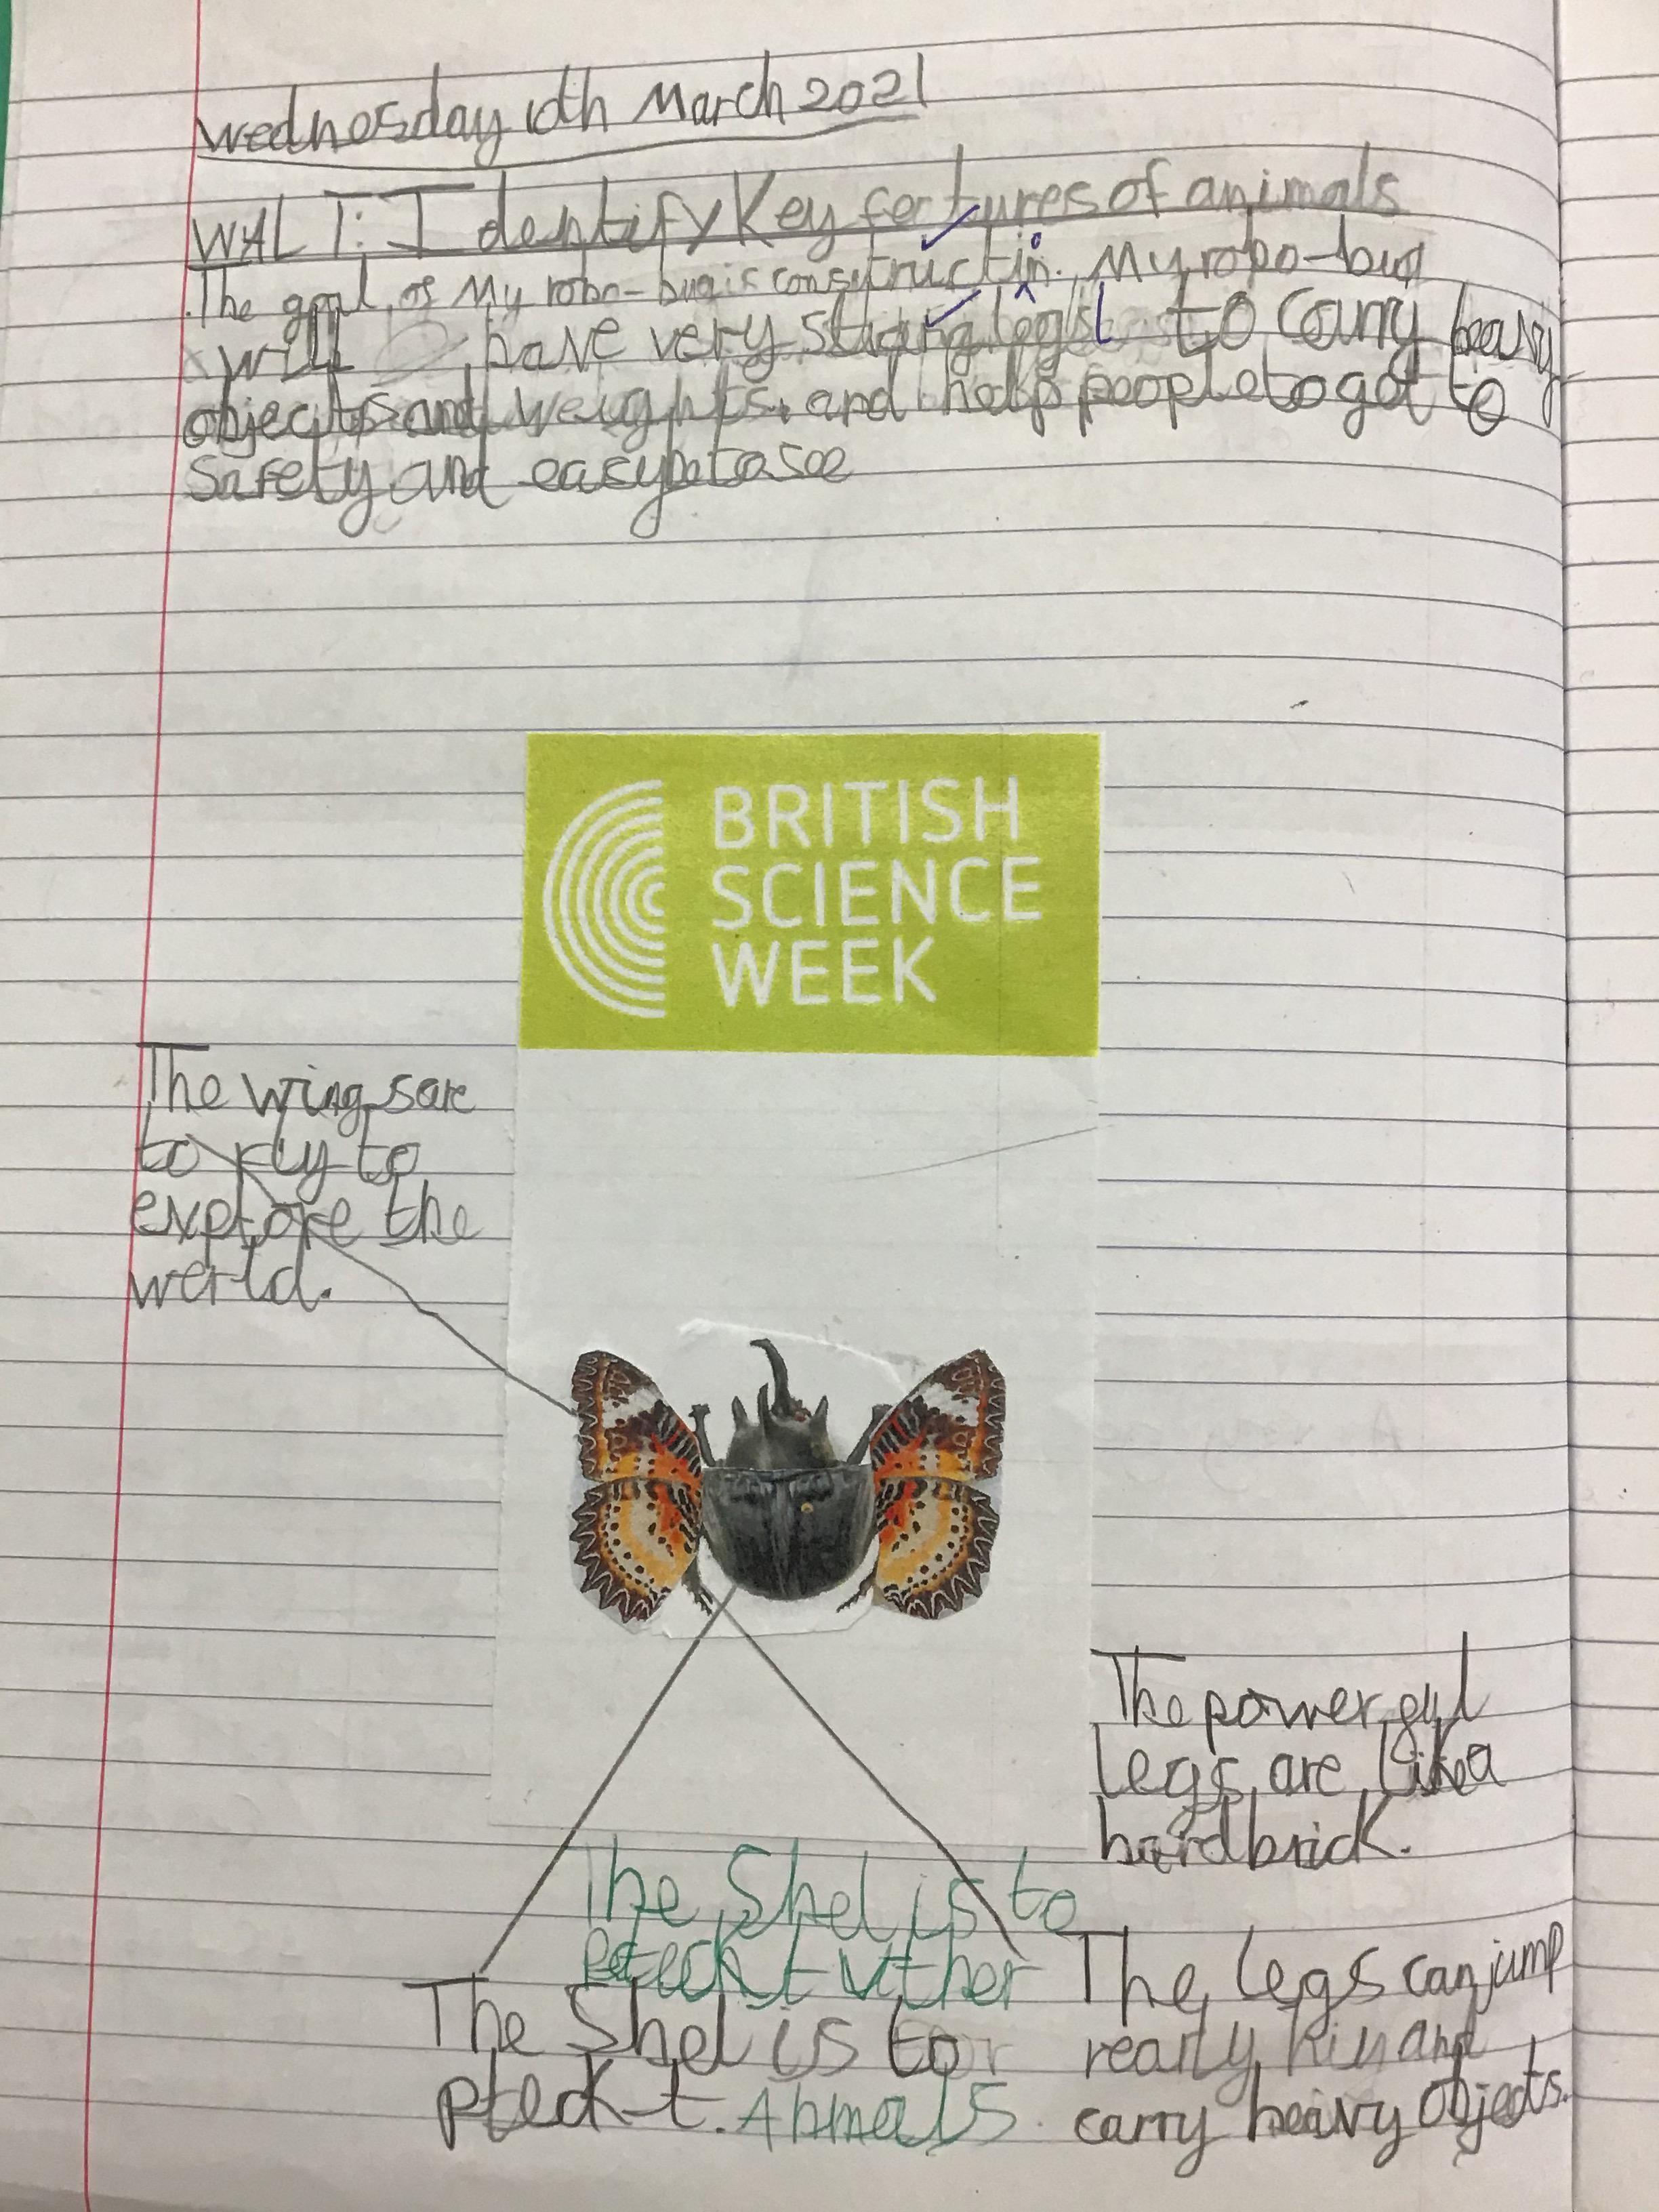 Wednesday 10th March 2021
WALT: Identify Key fertures of animals
The goal of My robo-bug is constructin. My robo-bug
will have very strong legs to carry heavy
objects and weights. and help people to got to
safety and easy to see
BRITISH
SCIENCE
WEEK
The wings are
to fly to
explore the
werld.
The powerful
legs are like a
hard brick.
The Shel is to
The Shel is to
pteckt. Anmals
The legs can jump
rearly hiy and
carry heaivy objects.